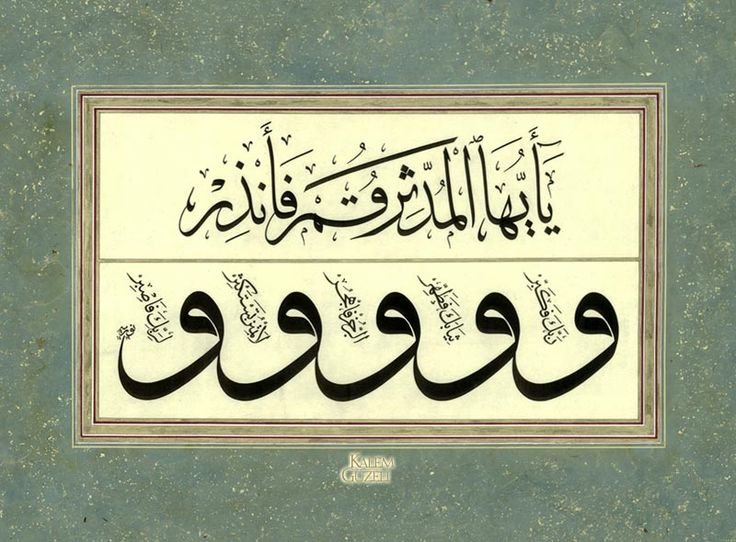 يَٰٓأَيُّهَا ٱلْمُدَّثِّرُ قُمْ فَأَنْذِرْ
و رَبَّكَ فَكَبِّرْ و ثِيَابَكَ فَطَهِّرْ و الرُّجْزَ فَاهْجُرْ و لَا تَمْنُنْ تَسْتَكْثِرُ و لِرَبِّكَ فَاصْبِرْ
KALEM
GÜZELİ